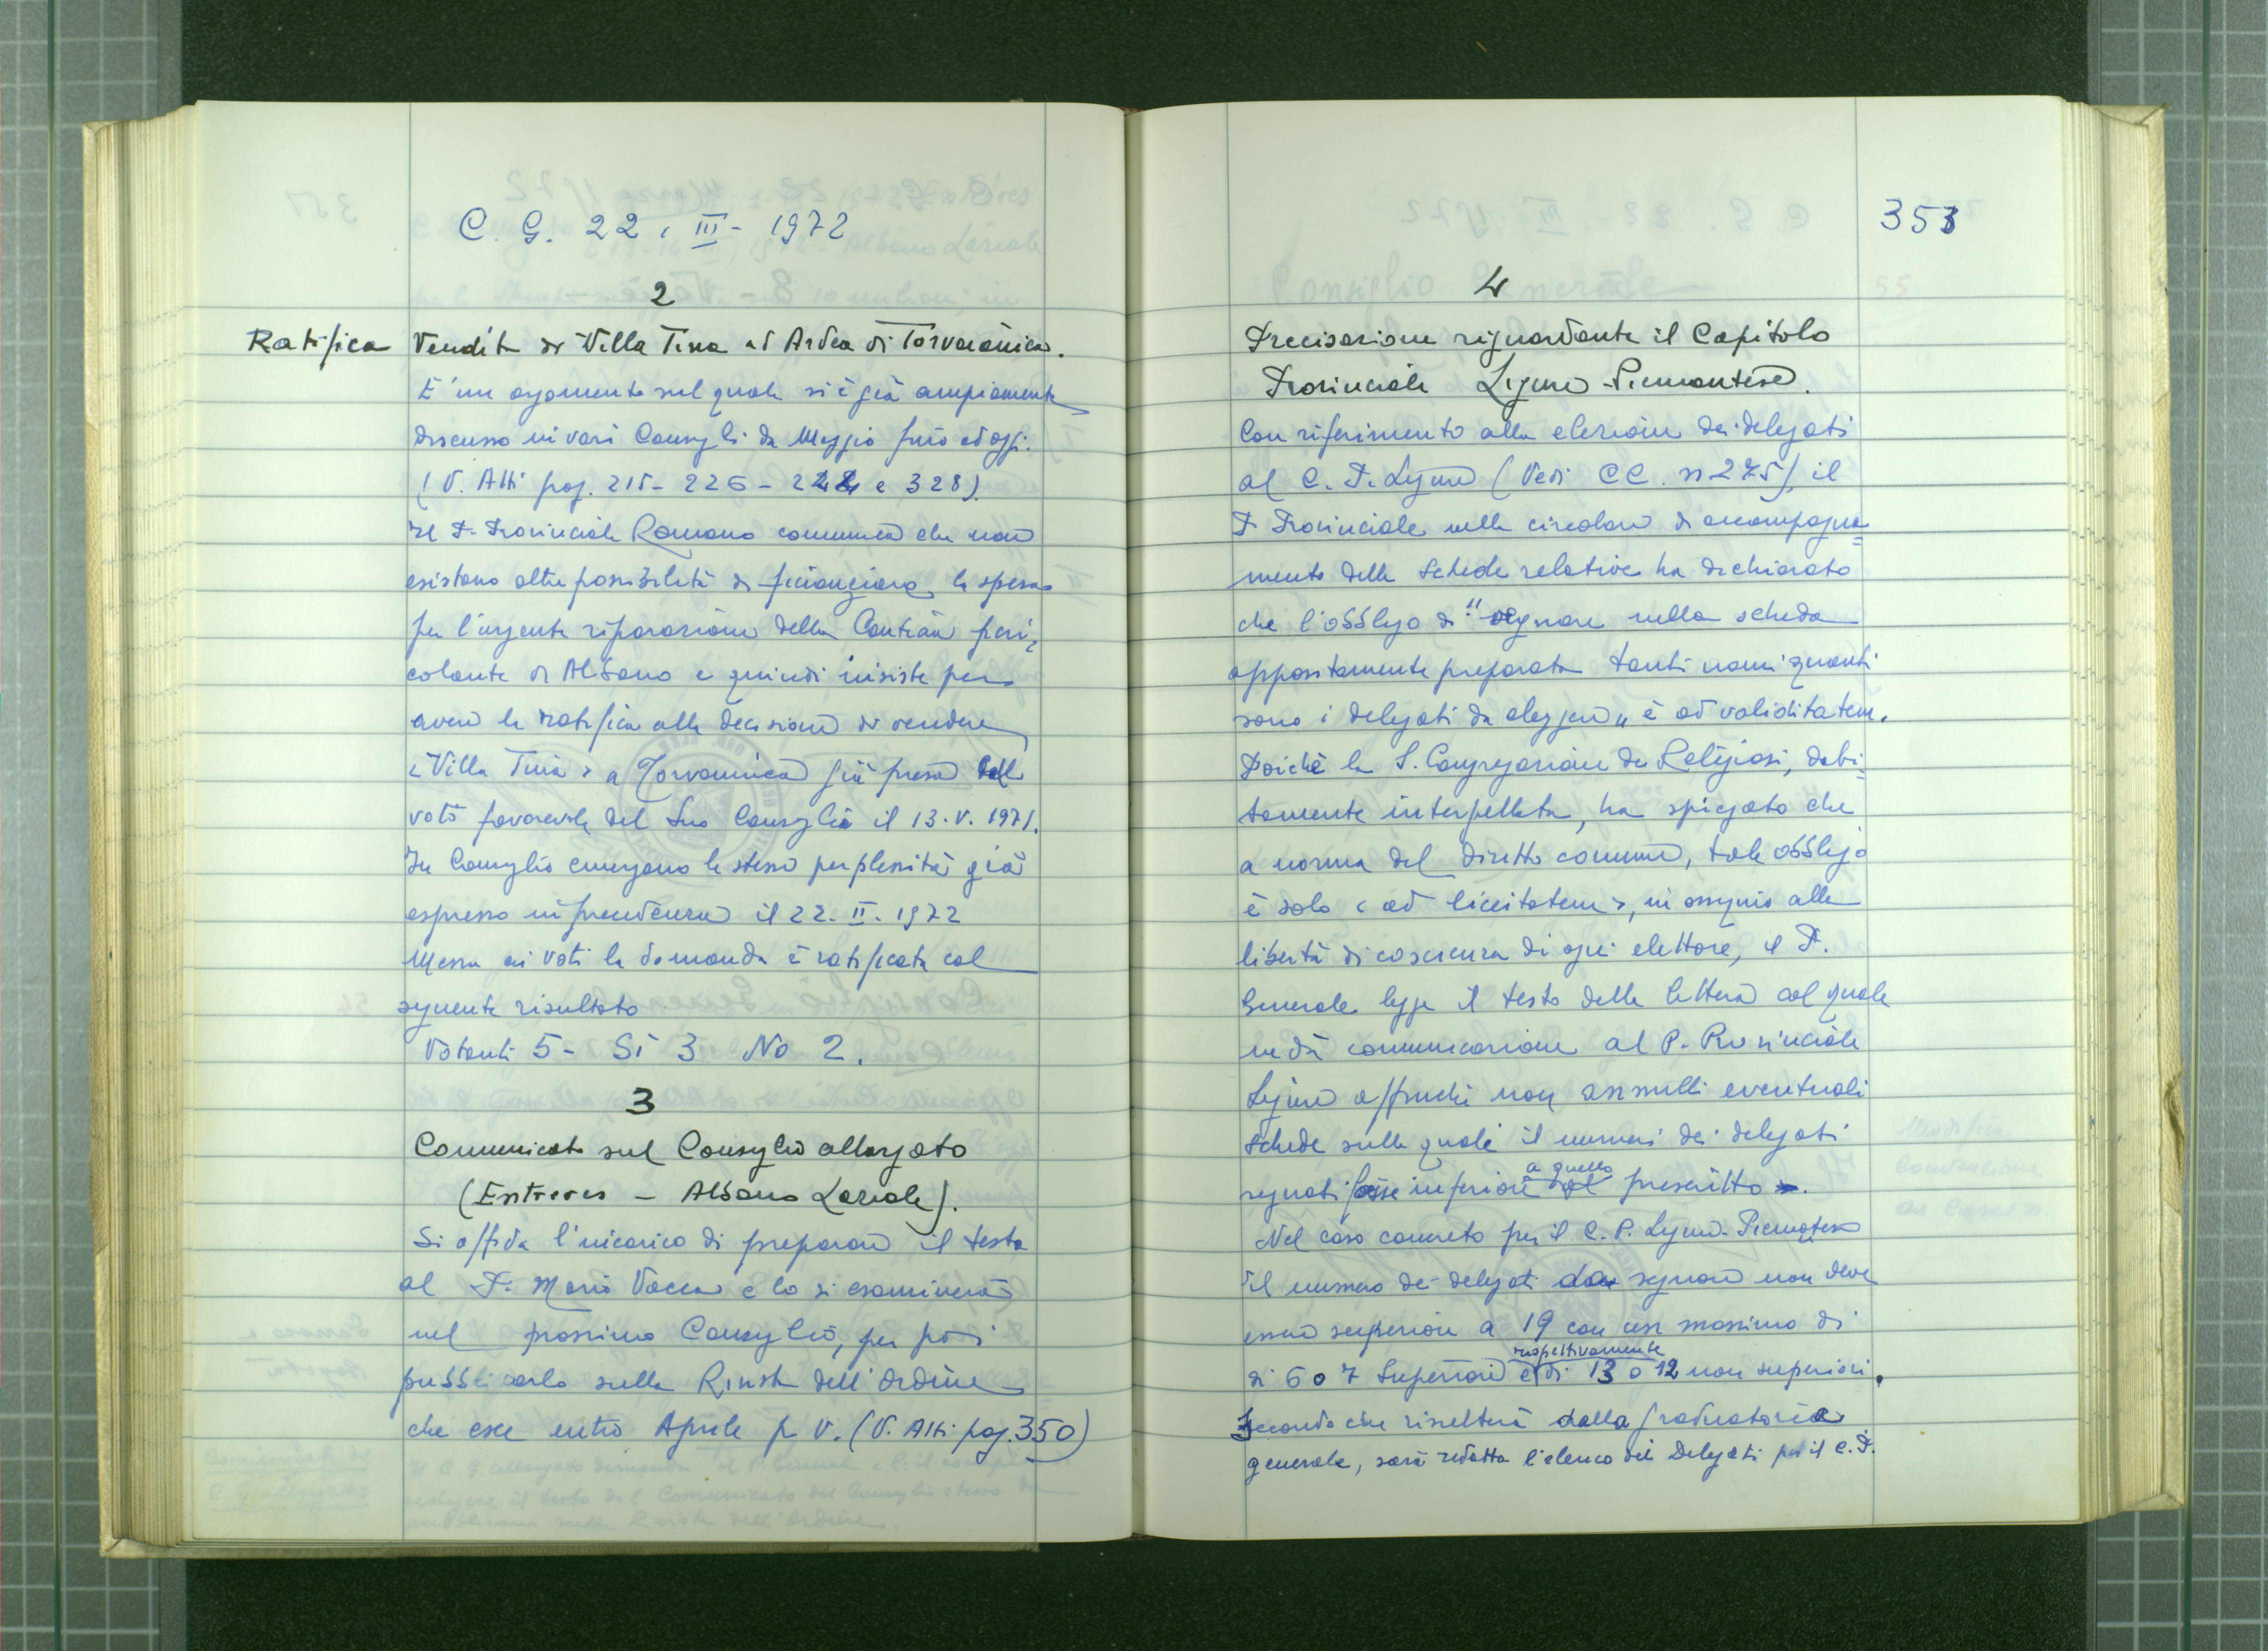 C. G. 22 . III - 1972
2
Ratifica
Vendita di Villa Tina ad Ardea di Torvaianica.
E' un argomento sul quale si è già ampiamente
discusso in vari Consigli da Maggio fino ad oggi.
(V. Atti pag. 215 - 226 - 244 e 328).
Il P. Provinciale Romano comunica che non
esistono altre possibilità di finanziare la spesa
per l'urgente riparazione della Cantina peri=
colante di Albano e quindi insiste per
avere la ratifica alla decisione di vendere
"Villa Tina" a Torvaianica già presa dal
voto favorevole del Suo Consiglio il 13.V.1971.
In Consiglio emergono le stesse perplessità già
espresse in precedenza il 22.II.1972
Messa ai voti la domanda è ratificata col
seguente risultato
Votanti 5 - Si 3 No 2.
3
Comunicato sul Consiglio allargato
(Entreves - Albano Laziale).
Si affida l'incarico di preparare il testo
al P. Mario Vacca e lo si esaminerà
nel prossimo Consiglio, per poi
pubblicarlo sulla Rivista dell'Ordine
che esce entro Aprile p. v. (V. Atti pag. 350)
353
4
Precisazione riguardante il Capitolo
Provinciale Ligure-Piemontese.
Con riferimento alla elezione dei delegati
al C. P. Ligure (Vedi CC. n 275), il
P. Provinciale nella circolare di accompagna=
mento delle schede relative ha dichiarato
che l'obbligo di "segnare nella scheda
appositamente preparata tanti nomi quanti
sono i delegati da eleggere" è ad validitatem.
Poichè la S. Congregazione dei Religiosi, debi=
tamente interpellata, ha spiegato che
a norma del diritto comune, tale obbligo
è solo "ad liceitatem", in ossequio alla
libertà di coscienza di ogni elettore, il P.
Generale legge il testo della lettera col quale
ne dà comunicazione al P. Provinciale
Ligure affinchè non annulli eventuali
schede sulle quali il numero dei delegati
segnati fosse inferiore a quello prescritto.
Nel caso concreto per il C. P. Ligure-Piemontese
il numero dei delegati da segnare non deve
essere superiore a 19 con un massimo di
di 6 o 7 Superiori e rispettivamente di 13 o 12 non superiori.
Secondo che risulterà dalla graduatoria
generale, sarà redatta l'elenco dei Delegati per il C. P.